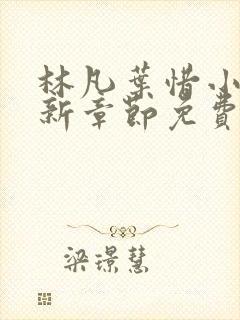 林凡葉惜小
新章節免費
梁璟慧